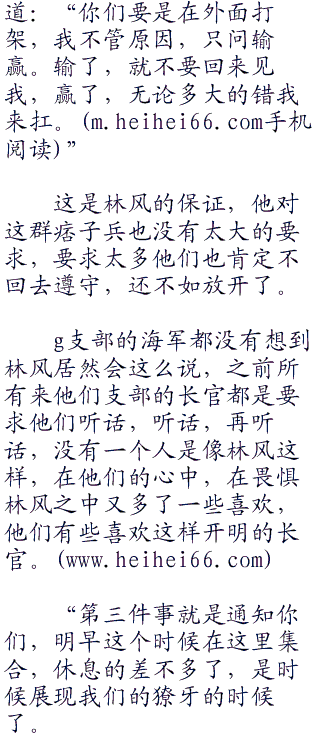 道：“你们要是在外面打
架，我不管原因，只问输
赢。输了，就不要回来见
我，赢了，无论多大的错我
来扛。(m.heihei66.com手机
阅读)”
这是林风的保证，他对
这群痞子兵也没有太大的要
求，要求太多他们也肯定不
回去遵守，还不如放开了。
g支部的海军都没有想到
林风居然会这么说，之前所
有来他们支部的长官都是要
求他们听话，听话，再听
话，没有一个人是像林风这
样，在他们的心中，在畏惧
林风之中又多了一些喜欢，
他们有些喜欢这样开明的长
官。(www.heihei66.com)
“第三件事就是通知你
们，明早这个时候在这里集
合，休息的差不多了，是时
候展现我们的獠牙的时候
了。